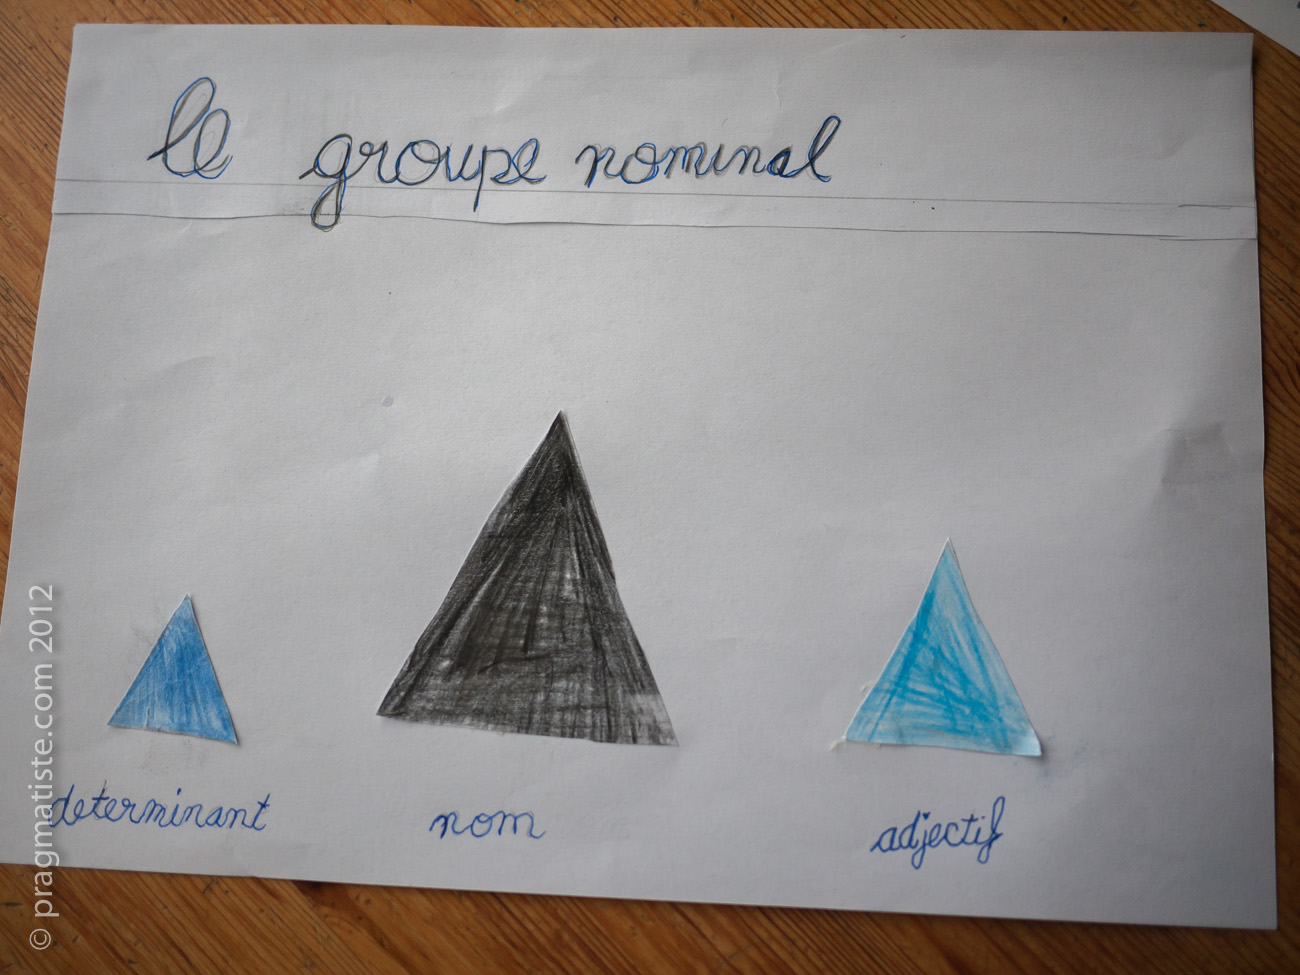 le groupe nominal
determinant nom adjectif
© pragmatiste.com 2012